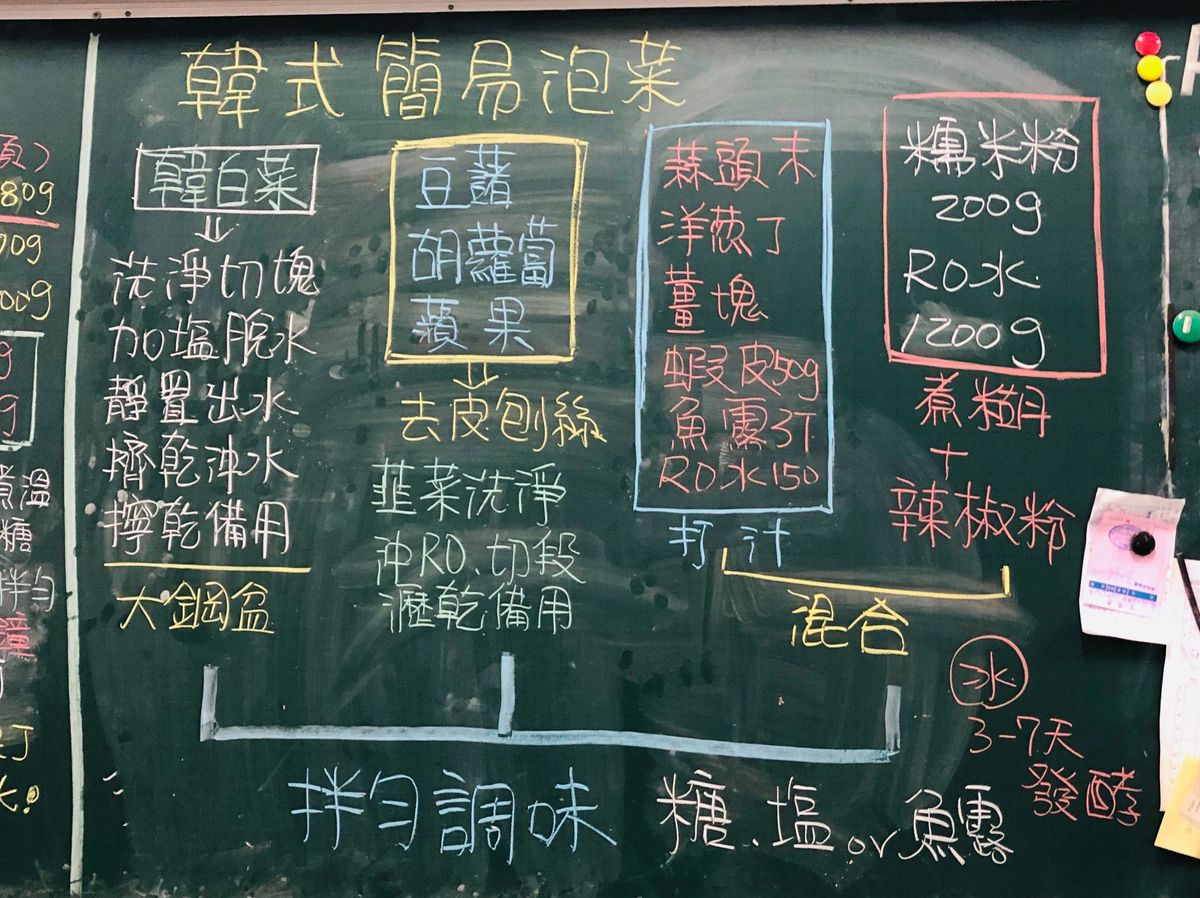 韓式簡易泡菜
韓白菜
洗淨切塊
加塩脫水
靜置出水
擠乾沖水
擰乾備用
大鋼盆
豆薯
胡蘿蔔
蘋果
去皮刨絲
韭菜洗淨
沖RO、切段
瀝乾備用
蒜頭末
洋蔥丁
薑塊
蝦皮50g
魚露3T
RO水150
打汁
糯米粉
200g
RO水
1200g
煮糊
+
辣椒粉
混合
冰
3-7天
發酵
拌勻調味 糖、塩or魚露
80g
70g
00g
g
g
煮溫
糖
拌勻
丁